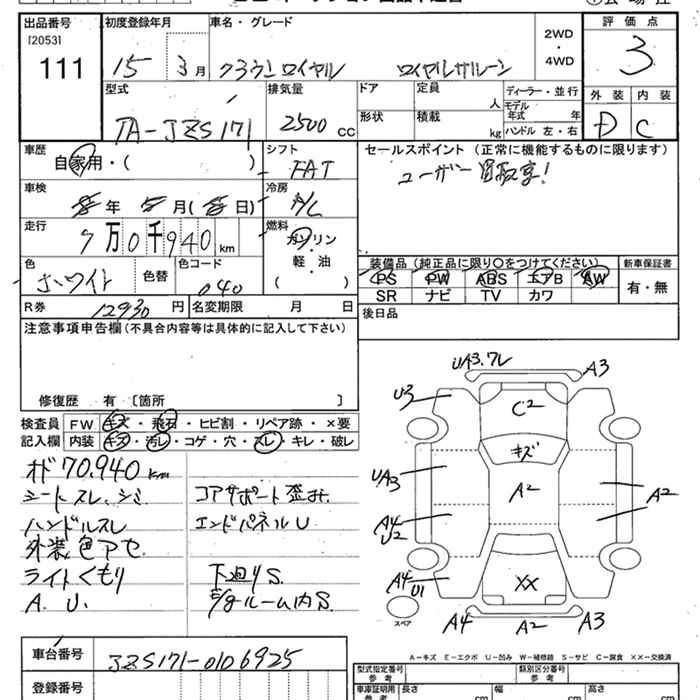 出品番号 [2053] 111
初度登録年月 15 3月
車名・グレード クラウン ロイヤル ロイヤルサルーン
2WD・4WD
評価点 3
外装 D 内装 C
型式 TA-JZS171
排気量 2500 cc
ドア 形状
定員 人
積載 kg
ディーラー・並行
モデル年式 年
ハンドル 左・右
車歴 自家用・( )
シフト FAT
セールスポイント (正常に機能するものに限ります)
ユーザー買取車!
車検 年 月( 日)
冷房 A/C
走行 7万0千940km
燃料 ガソリン・軽・油 ( )
色 ホワイト 色替 色コード 040
装備品 (純正品に限り○をつけてください) 新車保証書
PS PW ABS エアB AW 有・無
SR ナビ TV カワ
R券 12930円 名変期限 月 日
後日品
注意事項申告欄(不具合内容等は具体的に記入して下さい)
修復歴 有〔箇所 〕
検査員記入欄 FW キズ・飛石・ヒビ割・リペア跡・×要
内装 キズ・汚レ・コゲ・穴・スレ・キレ・破レ
オド70,940km
シートスレ、シミ コアサポート歪み
ハンドルスレ エンドパネルU
外装色アセ
ライトくもり 下廻りS
A. U. E/gルーム内S
UA3.ワレ A3
U3 C2
キズ
UA3 A2 A2
A4
U2
A4 U1 XX
A4 A2 A3
スペア
A-キズ E-エクボ U-凹み W-補修跡 S-サビ C-腐食 XX-交換済
車台番号 JZS171-0106925
登録番号
型式指定番号 参考 類別区分番号 参考
車庫証明用 参考 長さ cm 幅 cm 高さ cm